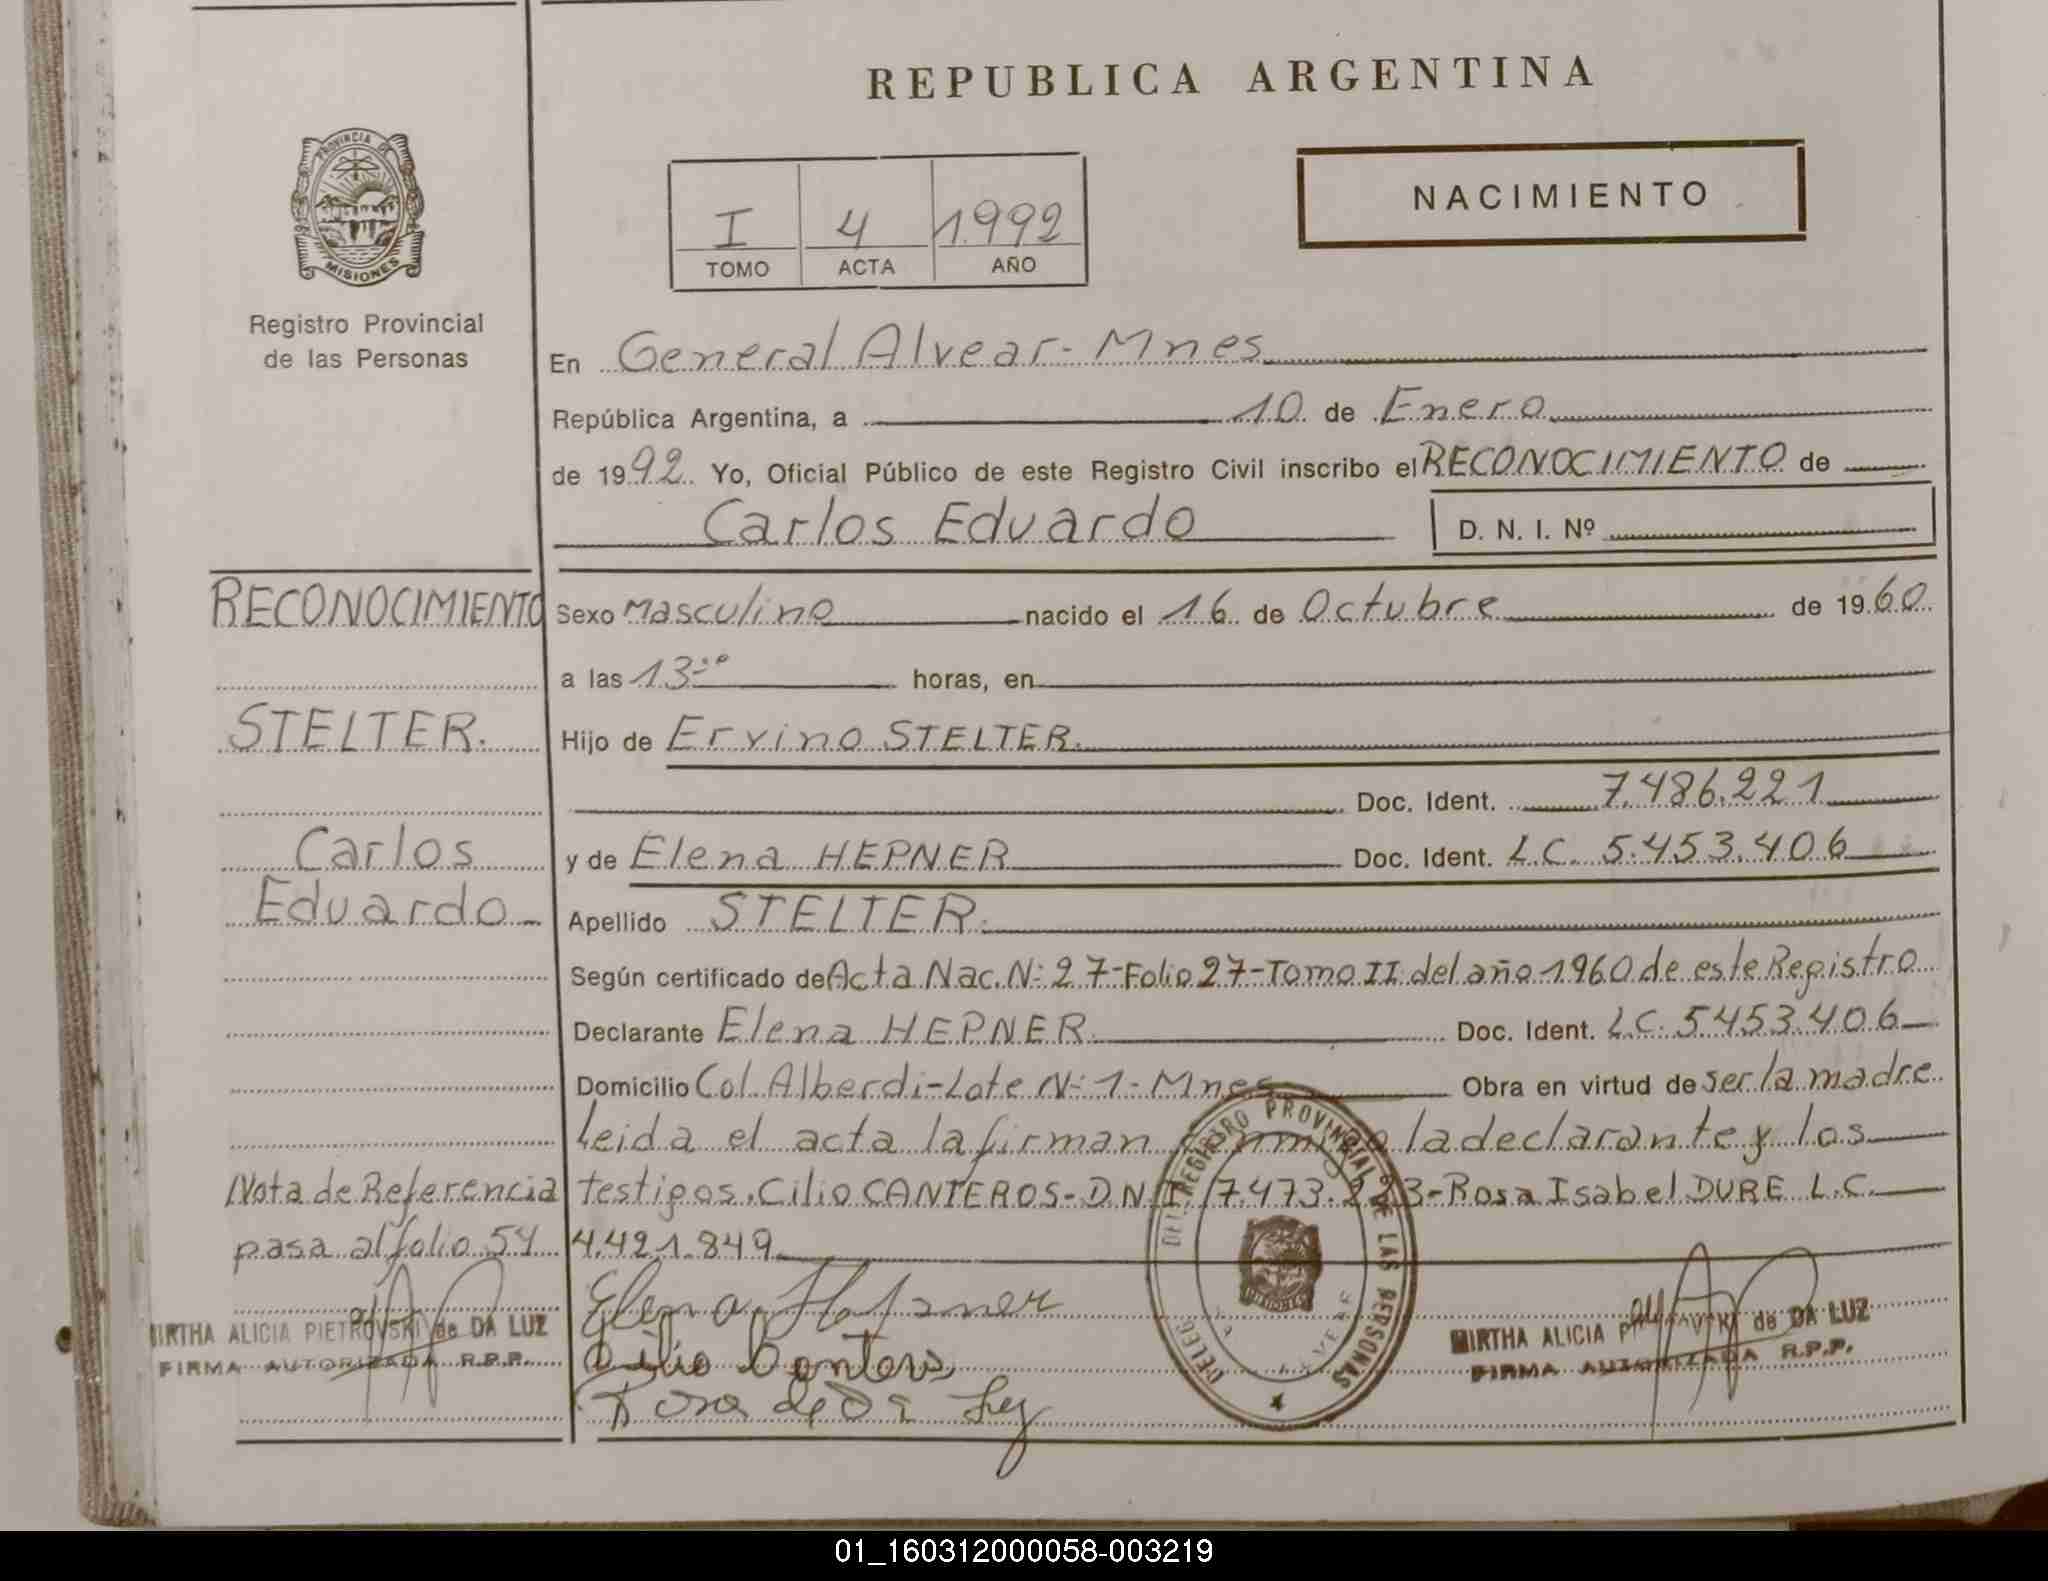 REPUBLICA ARGENTINA
PROVINCIA DE
MISIONES
Registro Provincial
de las Personas
I 4 1992
TOMO ACTA AÑO
NACIMIENTO
En General Alvear - Mnes
República Argentina, a 10 de Enero
de 1992. Yo, Oficial Público de este Registro Civil inscribo el RECONOCIMIENTO de
Carlos Eduardo
D. N. I. Nº
RECONOCIMIENTO
STELTER.
Carlos
Eduardo
Sexo Masculino nacido el 16 de Octubre de 1960
a las 13 horas, en
Hijo de Ervino STELTER.
Doc. Ident. 7.486.221
y de Elena HEPNER Doc. Ident. L.C. 5.453.406
Apellido STELTER.
Según certificado de Acta Nac. N: 27-Folio 27-Tomo II del año 1960 de este Registro
Declarante Elena HEPNER Doc. Ident. L.C. 5453.406
Domicilio Col. Alberdi-Lote N: 1-Mnes Obra en virtud de ser la madre
Leida el acta la firman conmigo la declarante y los
testigos. Cilio CANTEROS-D.N.I. 7.473.223-Rosa Isabel DURE L.C.
4.421.849
Nota de Referencia
pasa al folio 54
MIRTHA ALICIA PIETROVSKI de DA LUZ
FIRMA AUTORIZADA R.P.P.
Elena Hepner
Cilio Canteros
Rosa de Da
DELEG. DEL REGISTRO PROVINCIAL DE LAS PERSONAS
MISIONES
MIRTHA ALICIA PIETROVSKI de DA LUZ
FIRMA AUTORIZADA R.P.P.
01_160312000058-003219